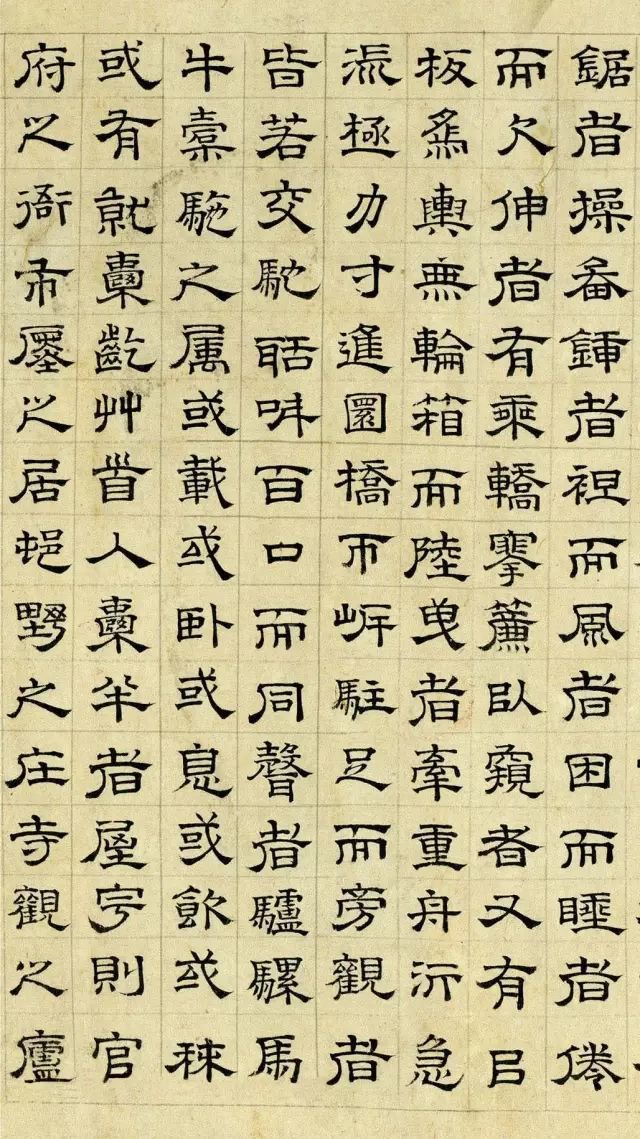 鋸者操畚鍤者袒而風者困而睡者倦
而欠伸者有乘轎搴簾以窺者又有以
板為輿無輪箱而陸曳者牽重舟泝急
流極力寸進圜橋帀岸駐足而旁觀者
皆若交馳聒百口而同聲者驢騾馬
牛橐駞之属或載或卧或息或飲或秣
或有就囊齕艸首入囊半者屋宇則官
府之衙市廛之居邨野之庄寺觀之廬